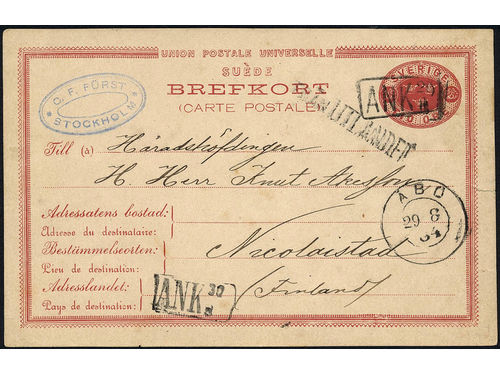 UNION POSTALE UNIVERSELLE
SUÈDE
BREFKORT
(CARTE POSTALE)
C. F. FÖRST
STOCKHOLM
SVERIGE
ANK
FRÅN UTLANDET
Till (à) Häradshöfdingen
H. Herr Knut
ÅBO
29 8
84
Adressatens bostad:
Adresse du destinataire:
Bestämmelseorten: Nicolaistad
Lieu de destination:
Adresslandet: (Finland)
Pays de destination:
ANK 30